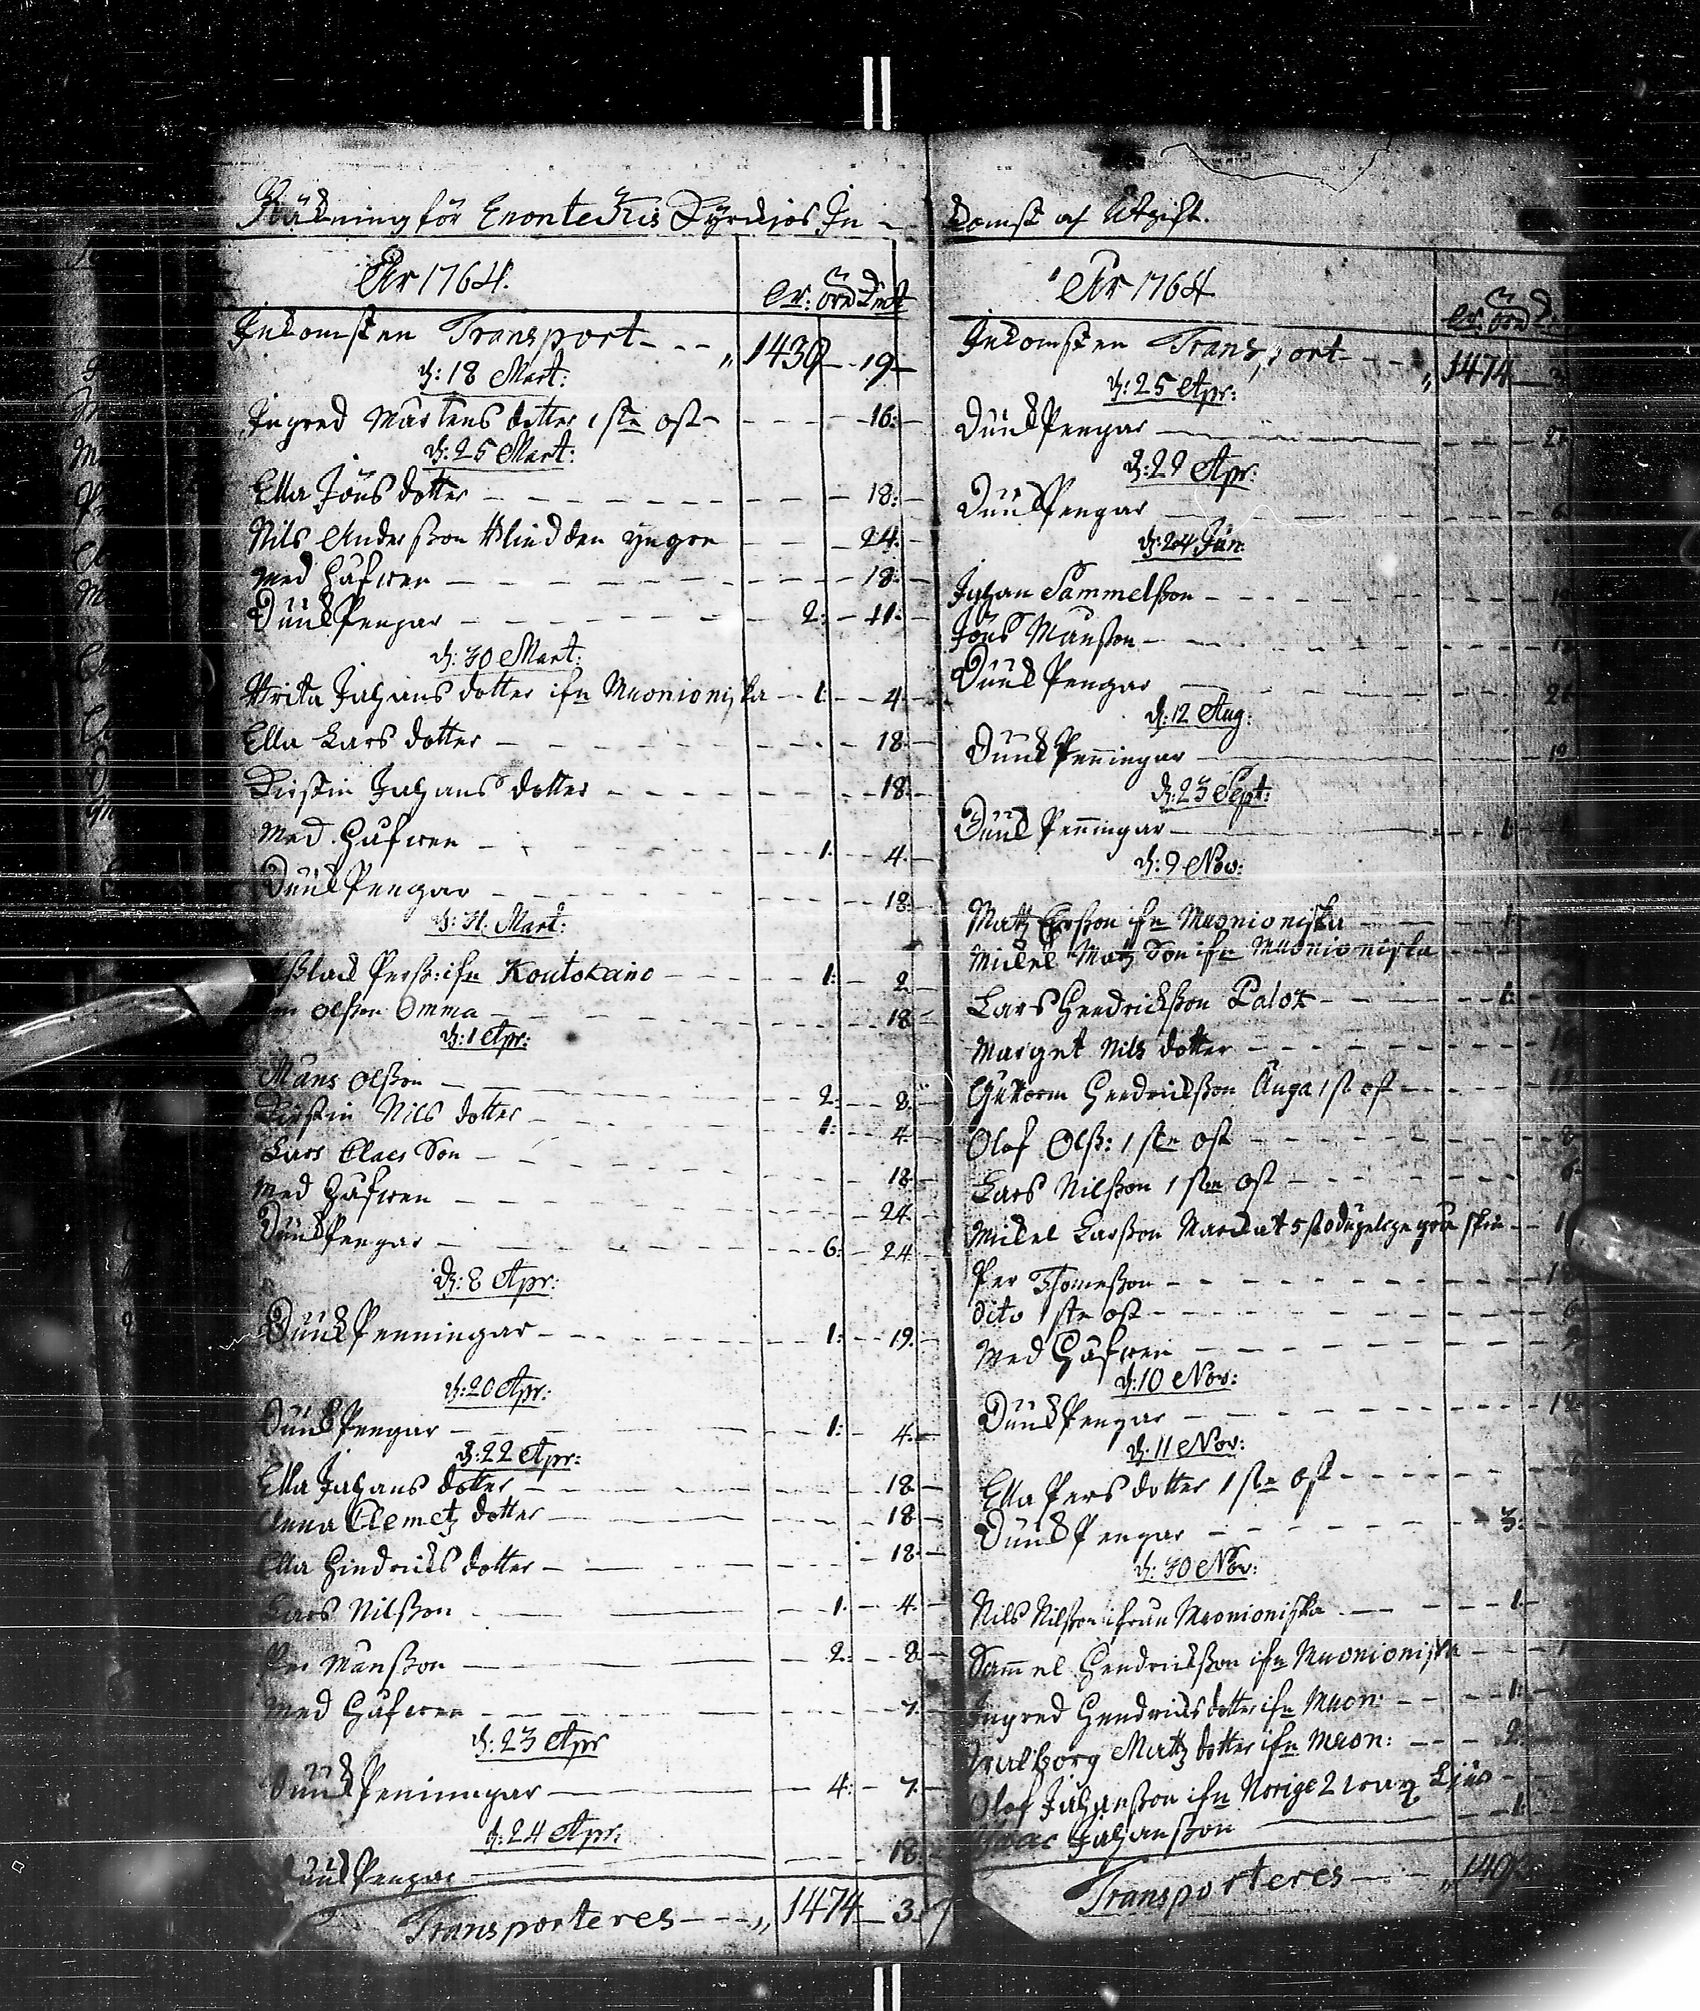 Räkning för Enontekis Kyrkios In-
År 1764.
Inkomsten Transport - - - „ 1439 - 19 -
d: 18 Mart:
Ingred Mårtens dotter 1 st. ost - - - 16: -
d: 25 Mart:
Ella Jöns dotter - - - 18: -
Nils Andersson Blind den yngre - - - 24. -
Med Håfwen - - - 18: -
Pungpengar - - - 2: - 11: -
d: 30 Mart:
Brita Johans dotter ifn Muonioniska - - 1: - 4 -
Ella Lars dotter - - - 18 -
Kirstin Johans dotter - - - 18: -
Med Håfwen - - - 1: - 4. -
Pungpengar - - - 18: -
d: 31. Mart:
Perss: ifn Koutokaino - - - 1: - 2 -
Olsson Omma - - - 18 -
d: 1 Apr:
Måns Olsson - - - 2: - 8: -
Kirstin Nils dotter - - - 1: - 4. -
Lars Claes Son - - - 18 -
Med Håfwen - - - 24. -
Pungpengar - - - 6: - 24 -
d: 8 Apr:
Pungpenningar - - - 1: - 19. -
d: 20 Apr:
Pungpengar - - - 1: - 4. -
d: 22 Apr:
Ella Johans dotter - - - 18 -
Anna Clemetz dotter - - - 18 -
Ella Hindrichs dotter - - - 18 -
Lars Nilsson - - - 1: - 4. -
Per Månsson - - - 2: - 8 -
Med Håfwen - - - 7. -
d: 23 Apr
Pungpenningar - - - 4: - 7. -
d: 24 Apr:
Pungpengar - - - 18: -
Transporteres - - - „ 1474 - 3:
komst och Utgift.
År 1764
Inkomsten Transport - - - „ 1474 -
d: 25 Apr:
Pungpengar - - -
d: 29 Apr:
Pungpengar - - - 6
d: 24 Jun:
Johan Sammelsson - - -
Jöns Månsson - - -
Pungpengar - - -
d: 12 Aug:
Pungpenningar - - -
d: 23 Sept:
Pungpenningar - - - 1:
d: 9 Nov:
Matz Ersson ifn Muonioniska - - - 1:
Mickel Matz Son ifn Muonioniska - - -
Lars Hendrichsson Palo - - - 1:
Marget Nils dotter - - -
Guttorm Hendrichsson Änga 1 st ost - - -
Olof Olss: 1 st. ost - - - 8
Lars Nilsson 1 st. ost - - - 6
Mickel Larsson 5 st odugelige skin - -
Per Thomesson - - -
dito 1 st. ost - - - 6
Med Håfwen - - -
d: 10 Nov:
Pungpengar - - -
d: 11 Nov:
Ella Pers dotter 1 st. ost - - -
Pungpengar - - - 3:
d: 30 Nov:
Nils Nilsson ifrån Muonioniska - - - 1:
Sammel Hendrichsson ifn Muonioniska - - -
Ingred Hendrichs dotter ifn Muon: - - - 1:
Walborg Matz dotter ifn Muon: - - - 2:
Olof Johansson ifn Norige 2 wax Ljus - -
Johansson - - - 1:
Transporteres - - - „ 149